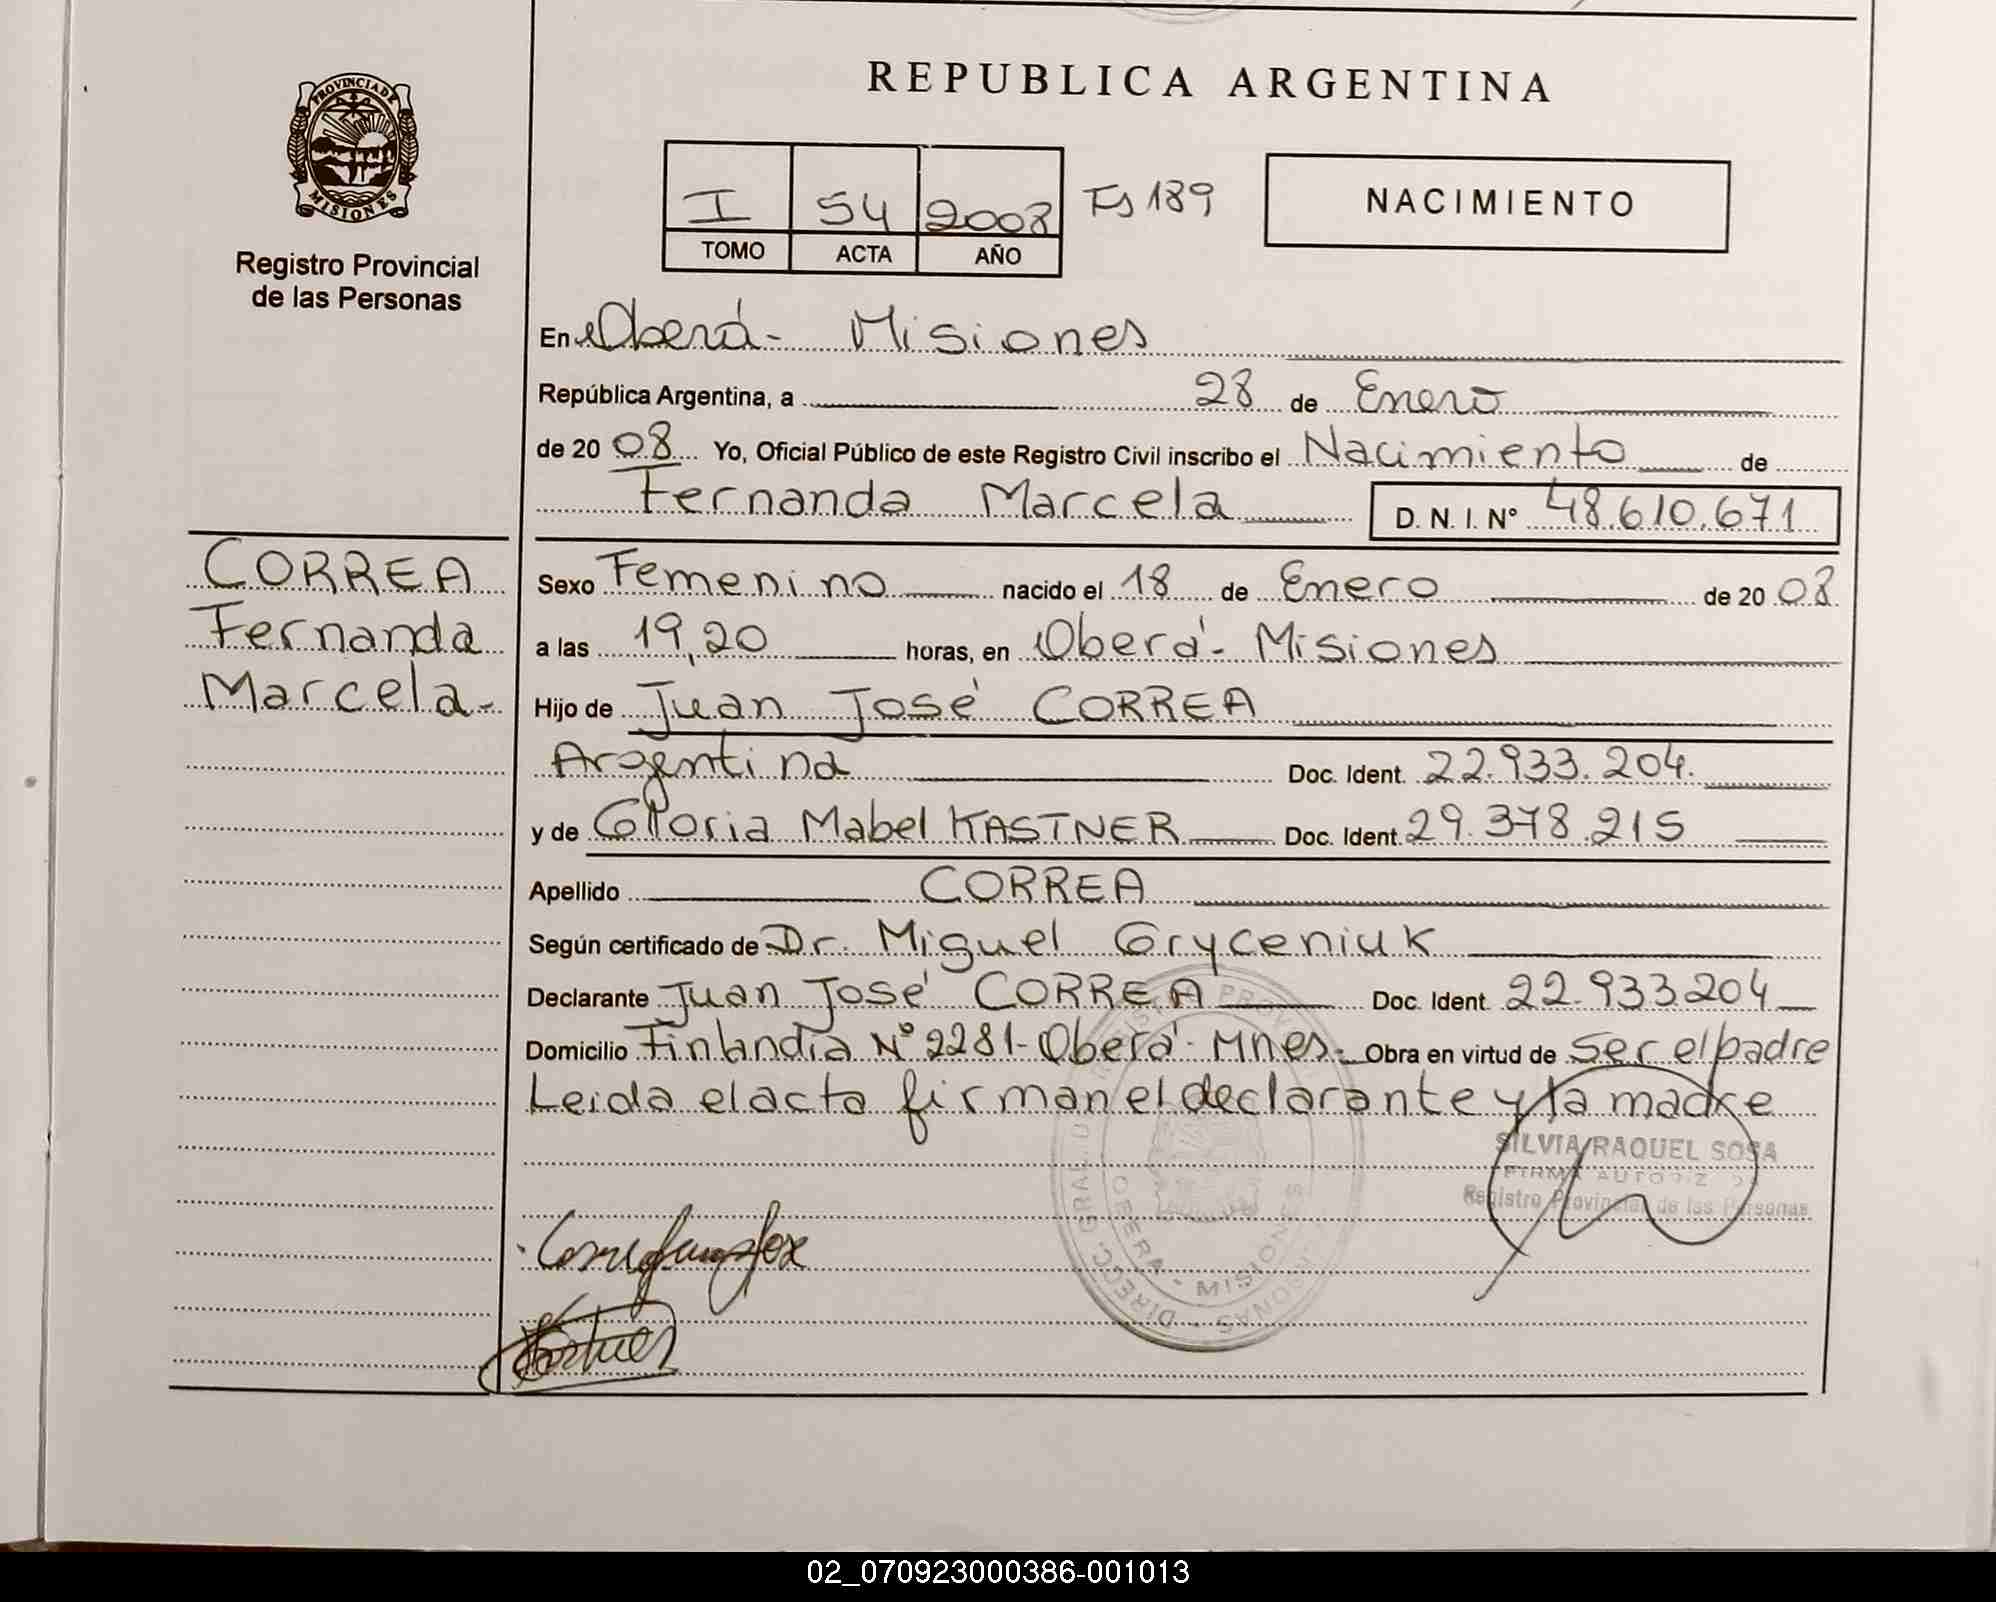 REPUBLICA ARGENTINA
PROVINCIA DE
MISIONES
Registro Provincial
de las Personas
I 54 2008 Fs 189
TOMO ACTA AÑO
NACIMIENTO
En Oberá - Misiones
República Argentina, a 28 de Enero
de 20 08 Yo, Oficial Público de este Registro Civil inscribo el Nacimiento de
Fernanda Marcela D. N. I. Nº 48.610.671
CORREA
Fernanda
Marcela-
Sexo Femenino nacido el 18 de Enero de 20 08
a las 19,20 horas, en Oberá - Misiones
Hijo de Juan José CORREA
Argentina Doc. Ident. 22.933.204.
y de Gloria Mabel KASTNER Doc. Ident. 29.378.215
Apellido CORREA
Según certificado de Dr. Miguel Gryceniuk
Declarante Juan José CORREA Doc. Ident. 22.933.204
Domicilio Finlandia Nº 2281- Oberá - Mnes. Obra en virtud de Ser el padre
Leida el acta firman el declarante y la madre
SILVIA RAQUEL SOSA
FIRMA
Registro Provincial de las Personas
OBERA - MISIONES
02_070923000386-001013